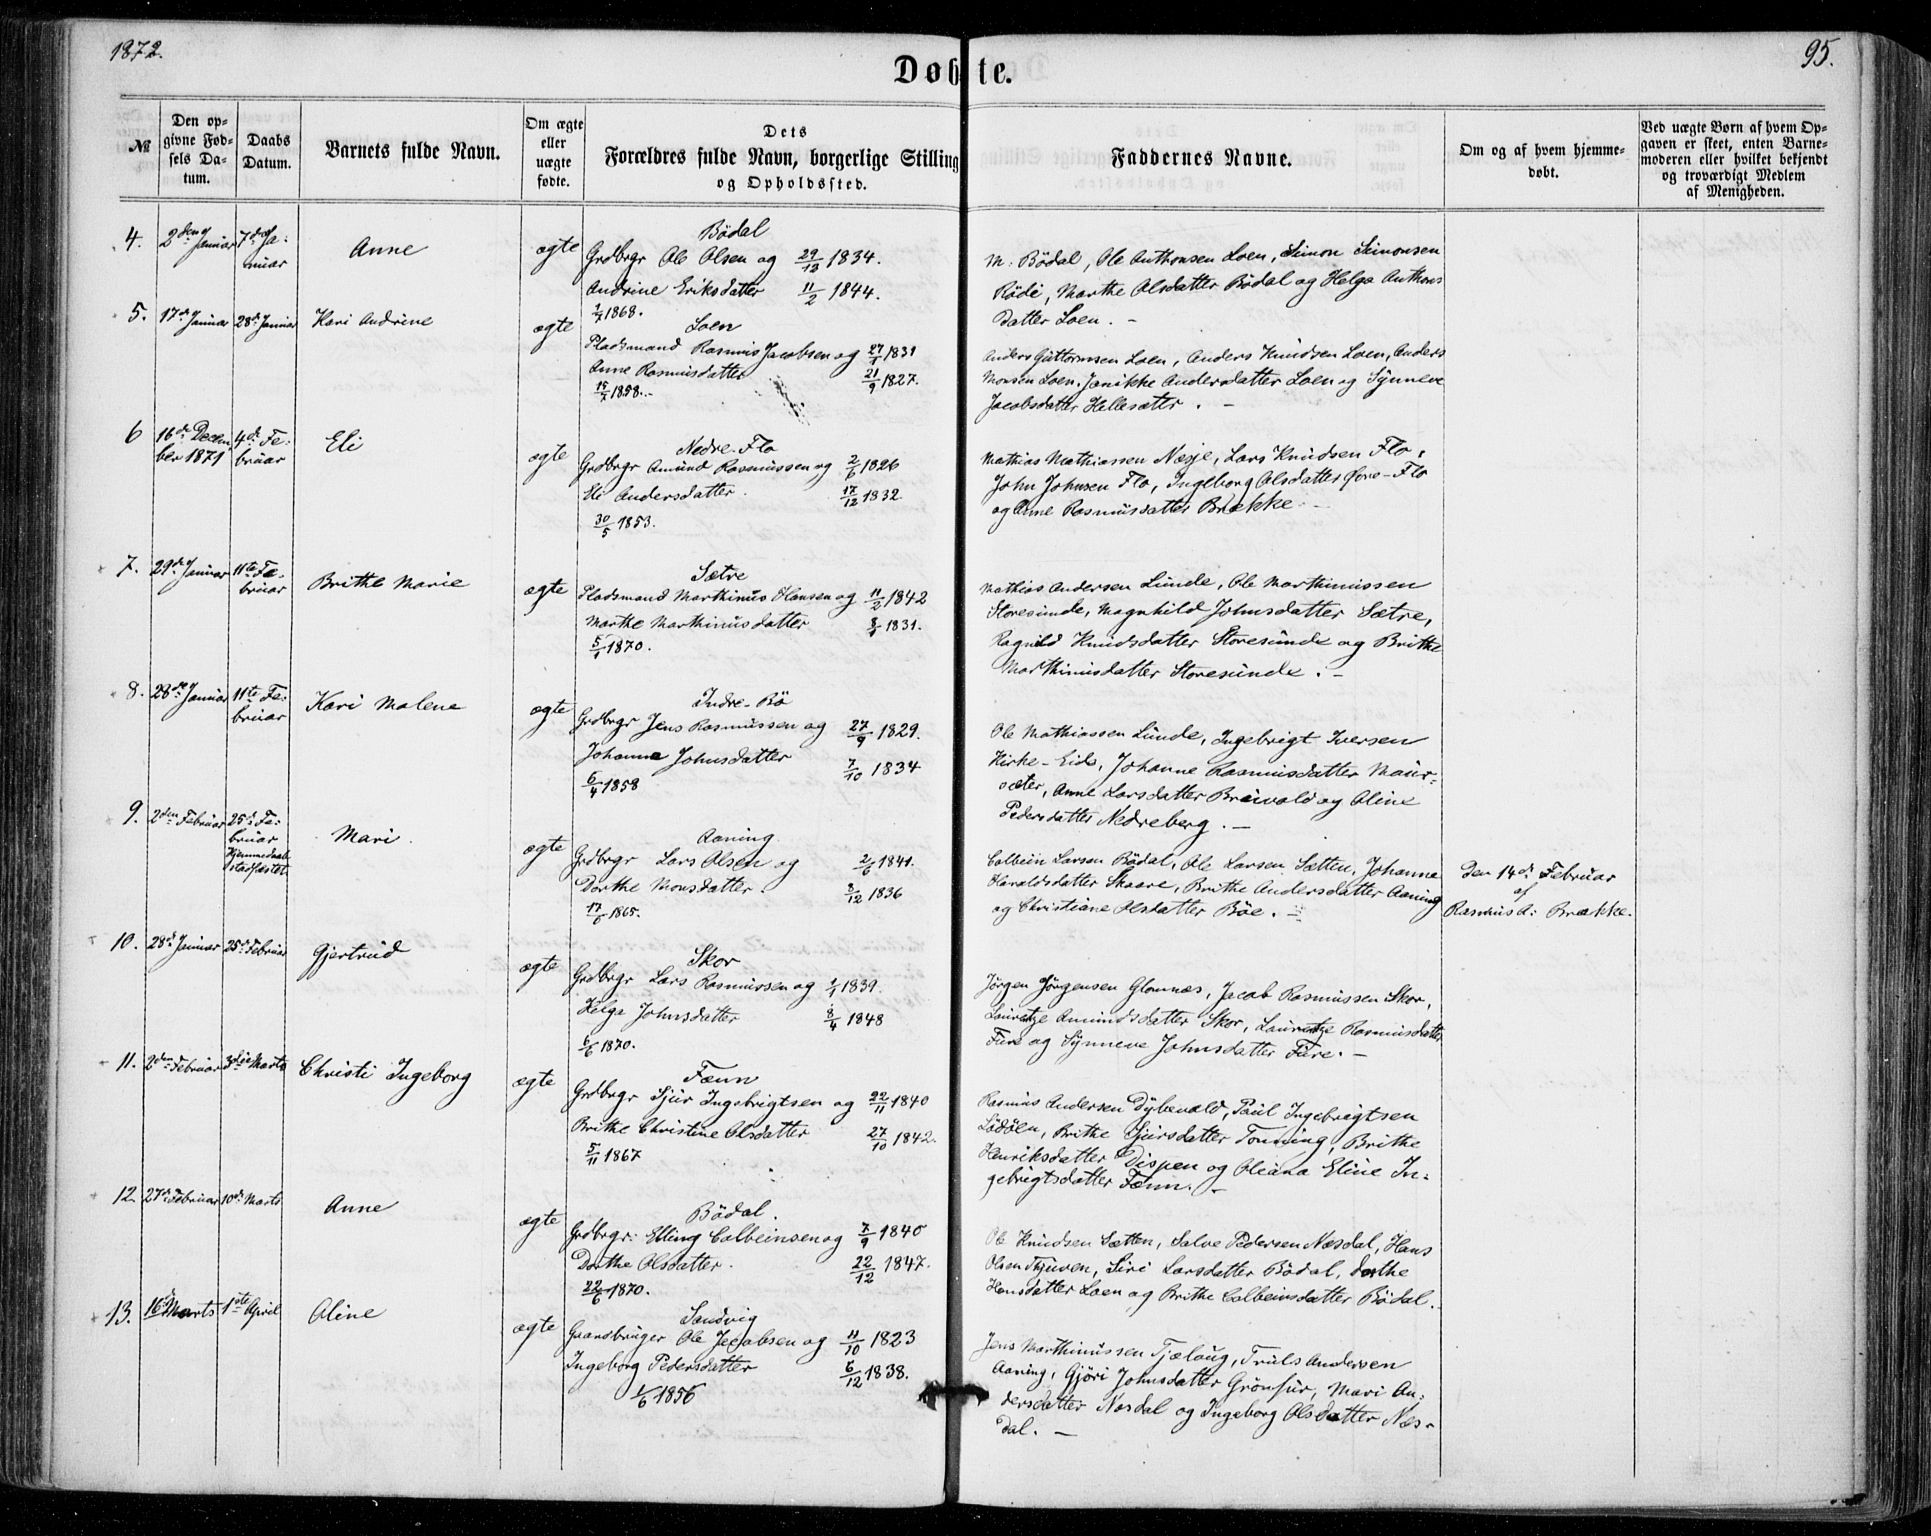 1872.
95.
Døbte.
№
Den op-
givne Fød-
sels Da-
tum.
Daabs
Datum.
Barnets fulde Navn.
Om ægte
eller
uægte
fødte.
Dets
Forældres fulde Navn, borgerlige Stilling
og Opholdssted.
Faddernes Navne.
Om og af hvem hjemme-
døbt.
Ved uægte Børn af hvem Op-
gaven er skeet, enten Barne-
moderen eller hvilket bekjendt
og troværdigt Medlem
af Menigheden.
4.
2den Januar
7de Ja-
nuar
Anne
ægte
Bödal
Grdbrgr Ole Olsen og 29/12 1834.
Andrine Eriksdatter 11/2 1844.
1/7 1868.
M: Bödal, Ole Anthonsen Loen, Simon Simonsen
Röde, Marthe Olsdatter Bödal og Helga Anthons
datter Loen. –
5.
17de Januar
28de Januar
Kari Andrine
ægte
Loen
Pladsmand Rasmus Jacobsen og 1831
Anne Rasmusdatter 21/9 1827.
15/7 1858.
Anders Guttormsen Loen, Anders Knudsen Loen, Anders
Monsen Loen, Janikke Andersdatter Loen og Synneve
Jacobsdatter Hellesæter. –
6
16de Decem
ber 1871
4de Fe-
bruar
Eli
ægte
Nedre-Flo
Grdbrgr Amund Rasmussen og 2/6 1826
Eli Andersdatter. 17/12 1832.
30/5 1853.
Mathias Mathiassen Nesje, Lars Knudsen Flo,
John Johnsen Flo, Ingeborg Olsdatter Øvre-Flo
og Anne Rasmusdatter Brække. –
7.
29de Januar
11te Fe-
bruar
Brithe Marie
ægte
Sætre
Pladsmand Marthinus Hansen og 11/2 1842
Marthe Marthinusdatter 1831.
5/1 1870.
Mathias Andersen Lunde, Ole Marthinussen
Storesunde, Magnhild Johnsdatter Sætre,
Ragnild Knudsdatter Storesunde og Brithe
Marthinusdatter Storesunde. –
8.
28de Januar
11te Fe-
bruar
Kari Malene
ægte
Indre-Bö
Grdbrgr Jens Rasmussen og 27/9 1829.
Johanne Johnsdatter 7/10 1834
6/4 1858
Ole Mathiassen Lunde, Ingebrigt Iversen
Kirke-Eide, Johanne Rasmusdatter Maur-
sæter, Anne Larsdatter Breivold og Oline
Pedersdatter Nedreberg. –
9.
2den Februar
25de Fe-
bruar
Hjemmedaab
stadfæstet
Mari.
ægte
Aaning.
Grdbrgr Lars Olsen og 2/6 1841.
Dorthe Monsdatter 8/12 1836
17/6 1865.
Colbein Larsen Bödal, Ole Larsen Sætten, Johanne
Haraldsdatter Skaare, Brithe Andersdatter Aaning
og Christiane Olsdatter Böe. –
Den 14de Februar
af
Rasmus A: Brække.
10.
28de Januar
25de Februar
Gjertrud
ægte
Skor
Grdbrgr Lars Rasmussen og 1/1 1839.
Helga Johnsdatter 8/4 1848
6/6 1870.
Jörgen Jörgensen Glomnæs, Jacob Rasmussen Skor,
Lauretze Amundsdatter Skor, Lauretze Rasmusdatter
Fure og Synneve Johnsdatter Fure. –
11.
2den Februar
3die Marts
Christi Ingeborg
ægte
Fænn
Grdbrgr Sjur Ingebrigtsen og 22/11 1840
Brithe Christine Olsdatter 27/10 1842.
5/11 1867
Rasmus Andersen Dybevold, Paul Ingebrigtsen
Lödöen, Brithe Sjursdatter Tonning, Brithe
Henriksdatter Dispen og Oliana Eline In-
gebrigtsdatter Fænn. –
12.
27de Februar
10de Marts
Anne
ægte
Bödal.
Grdbrgr: Elling Colbeinsen og 7/9 1840
Dorthe Olsdatter. 22/12 1847.
22/6 1870.
Ole Knudsen Sætten, Salve Pedersen Næsdal, Hans
Olsen Tjuven, Siri Larsdatter Bödal, Dorthe
Hansdatter Loen og Brithe Colbeinsdatter Bödal.
13.
16de Marts
1ste April
Oline
ægte
Sandvig
Gaardbruger Ole Jacobsen og 11/10 1823
Ingeborg Pedersdatter 6/12 1838.
1/6 1856
Jens Marthinussen Tjelaug, Truls Andersen
Aaning, Gjöri Johnsdatter Grönfur, Mari An-
dersdatter Nosdal og Ingeborg Olsdatter Næs-
dal. –